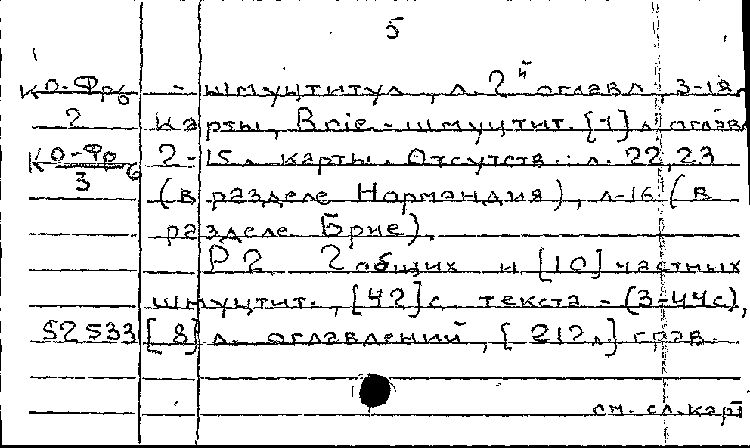 5
КО-Фр6 - шмуцтитул, л. 2й оглавл. 3-18л
2 карты, Brie - шмуцтит. [1] л оглав
КО-Фр6 2-15л карты. Отсутств.: л. 22,23
3 (в разделе Нормандия), л-16 (в
разделе Брие).
Р2 2 общих и [10] частных
шмуцтит., [42] с текста - (3-44с),
52533 [8] л. оглавлений, [212л] грав.
см. сл. карт